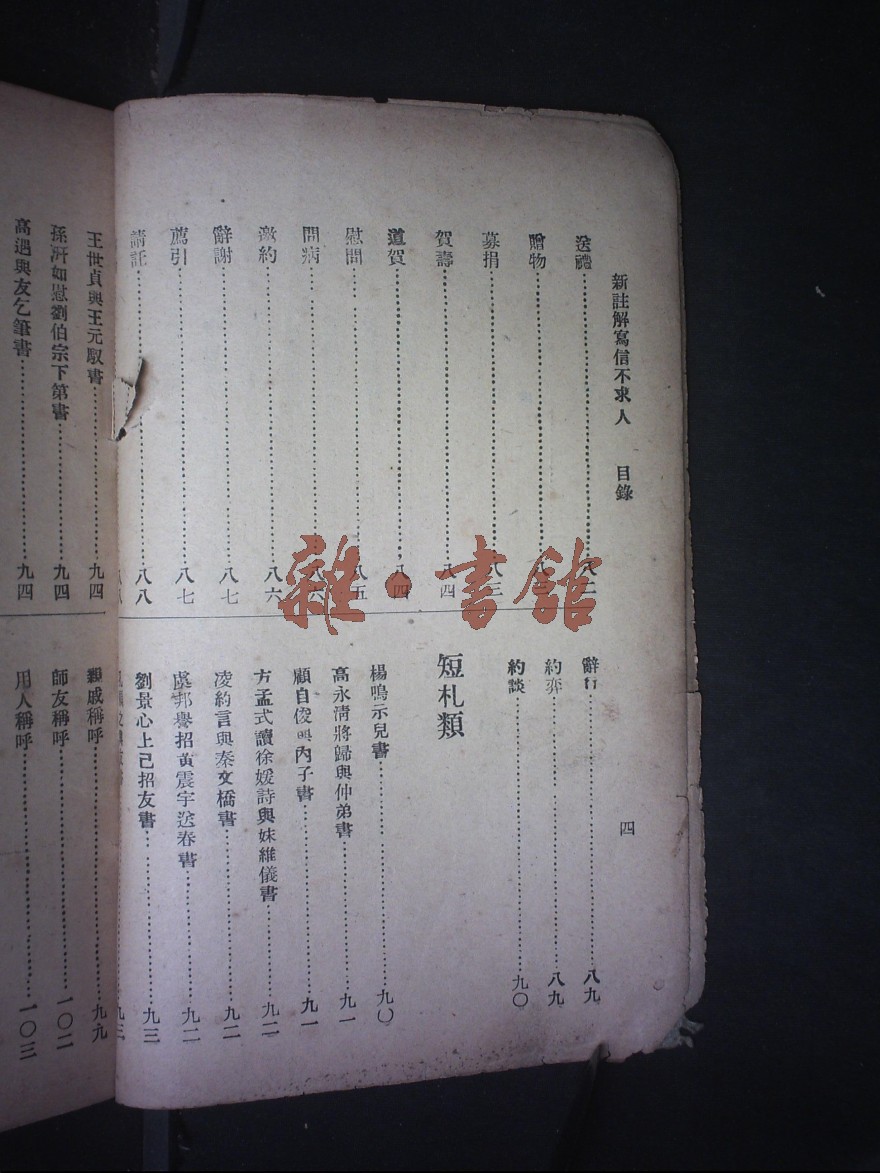 新註解寫信不求人 目錄 四
送禮 八二
贈物
募捐 八三
賀壽 八四
道賀 八四
慰問 八五
問病 八六
邀約 八六
辭謝 八七
薦引 八七
請託 八八
八八
辭行 八九
約弈 八九
約談 九〇
短札類
楊鳴示兒書 九〇
高永清將歸與仲弟書 九一
顧自俊與內子書 九一
方孟式讀徐媛詩與妹維儀書 九二
凌約言與秦文橋書 九二
虞邦譽招黃震宇送春書 九二
劉景心上已招友書 九三
九三
王世貞與王元馭書 九四
孫汧如慰劉伯宗下第書 九四
高遇與友乞筆書 九四
親戚稱呼 九九
師友稱呼 一〇二
用人稱呼 一〇三
雜·書館